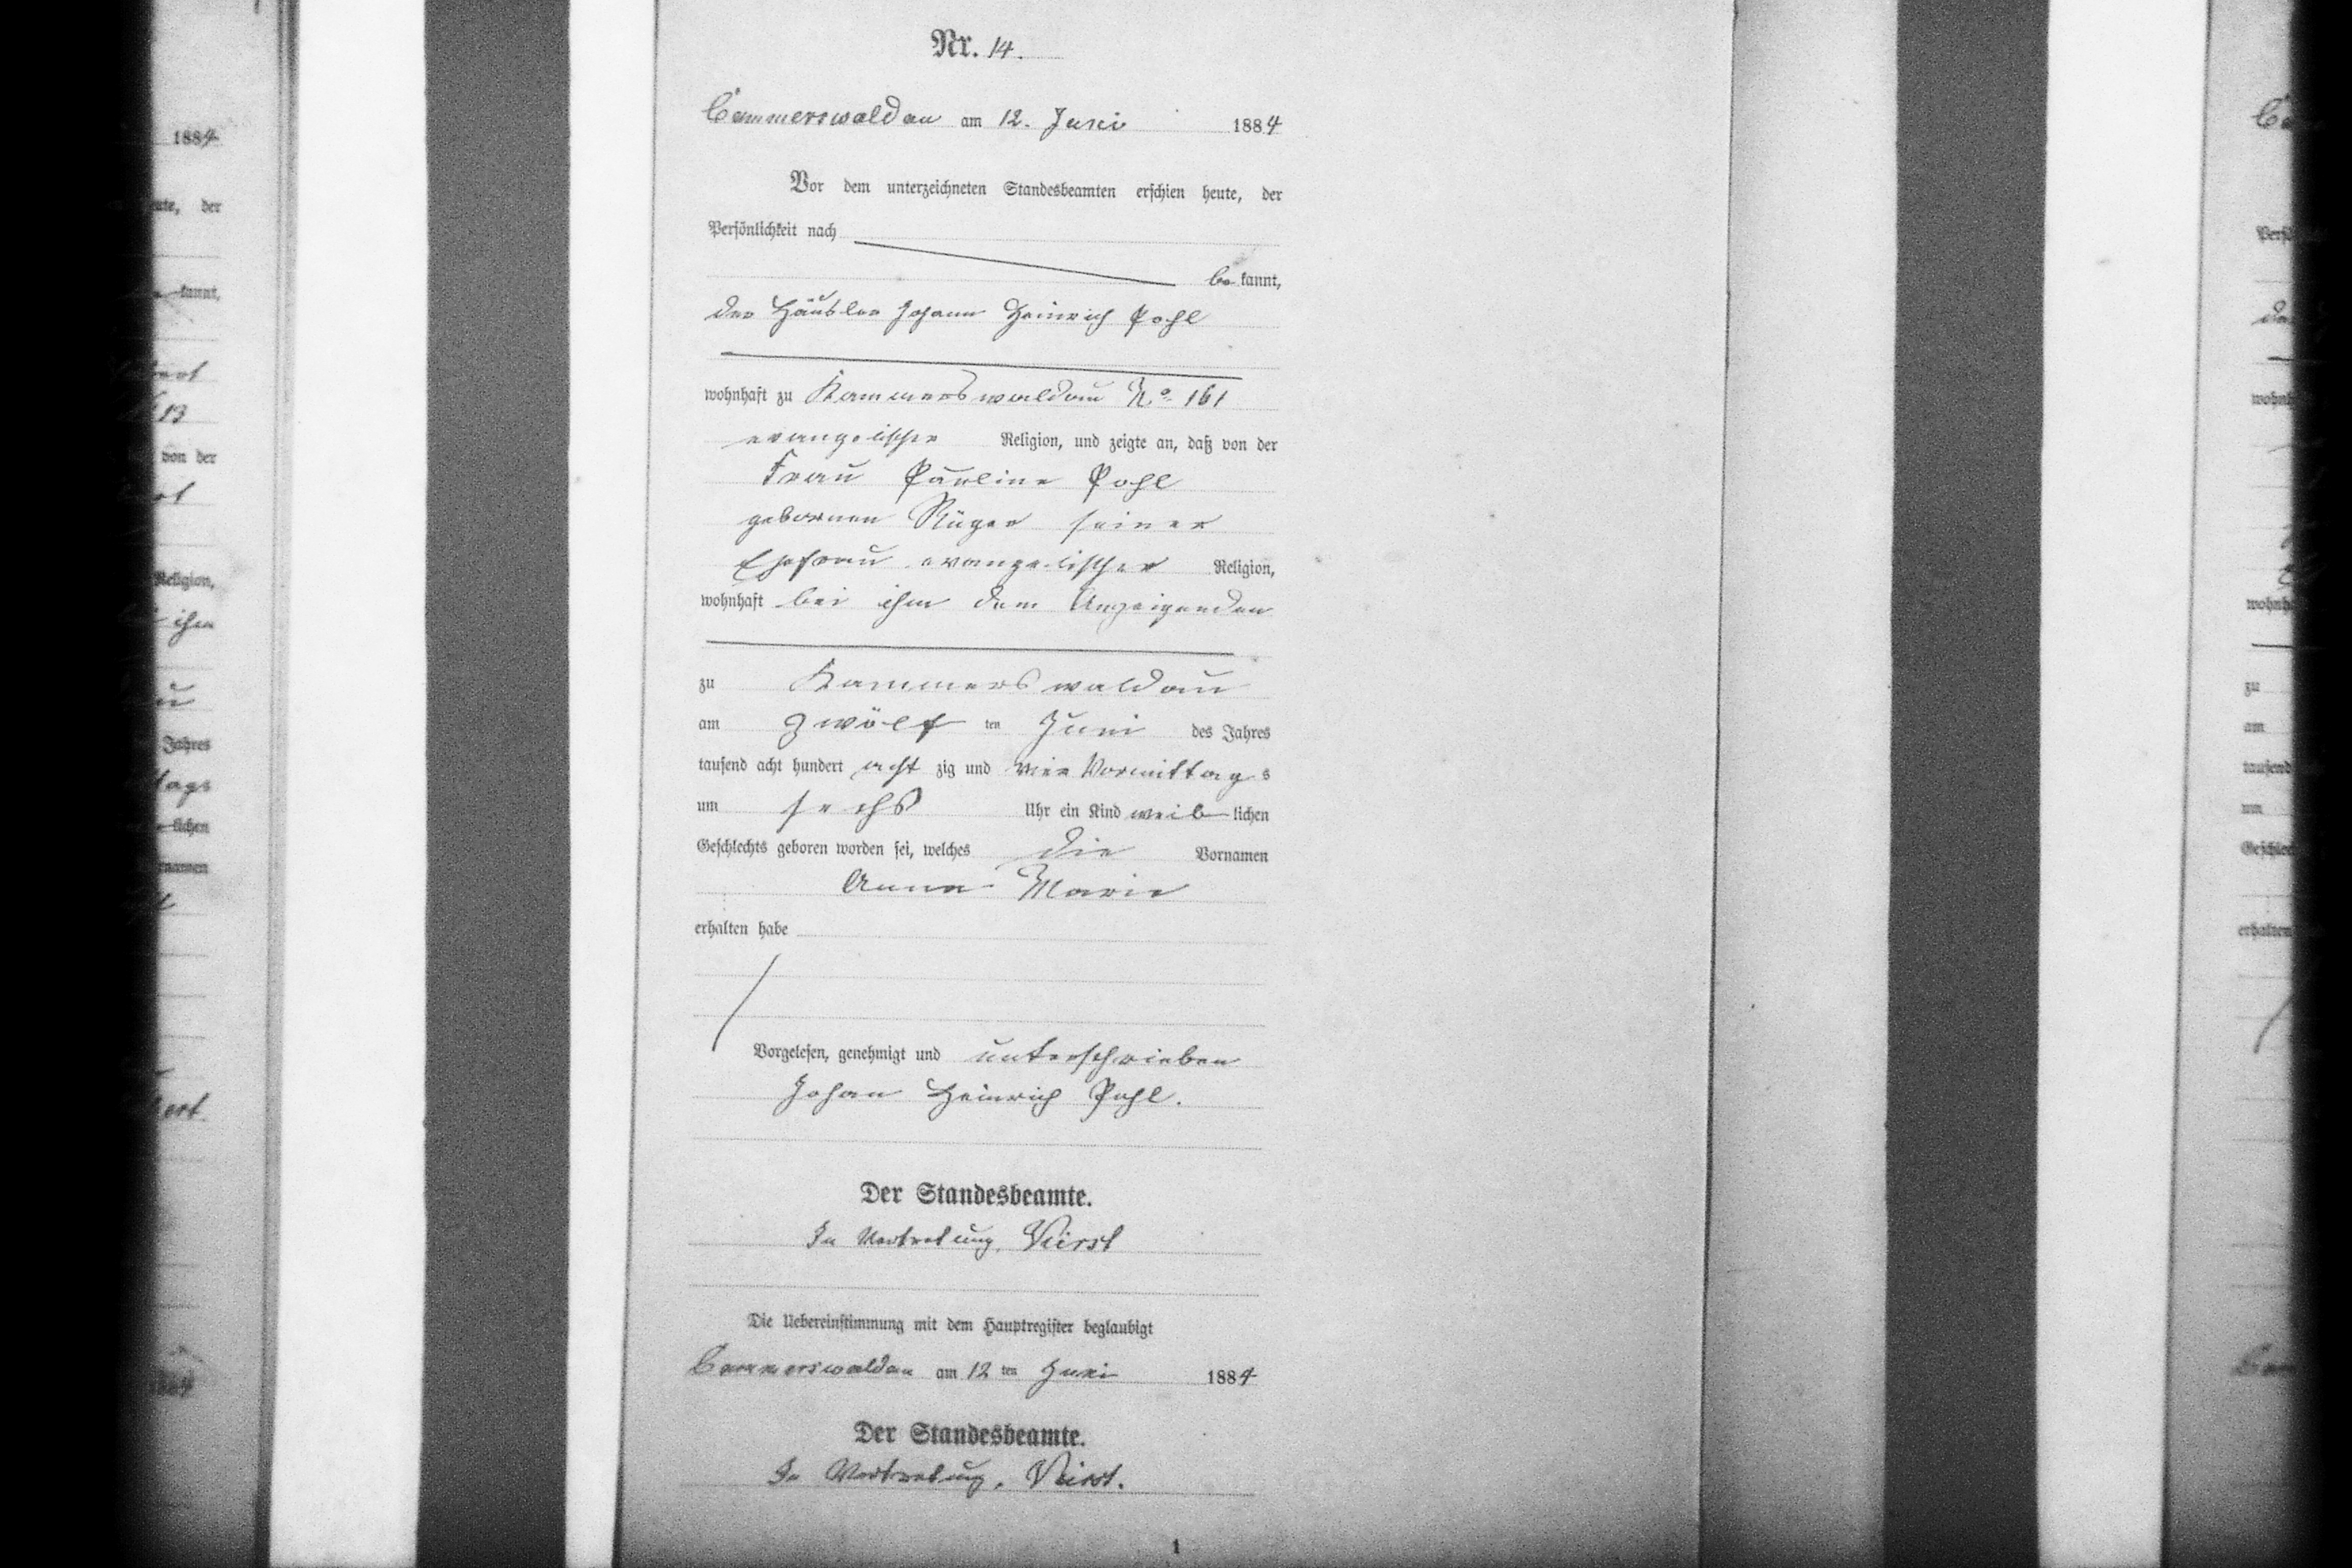 1884
Nr. 14.
Cammerswaldau am 12. Juni 1884
Vor dem unterzeichneten Standesbeamten erschien heute, der
Persönlichkeit nach
be kannt,
der Häusler Johann Heinrich Pohl
wohnhaft zu Kammerswaldau No. 161
evangelischer Religion, und zeigte an, daß von der
Frau Pauline Pohl
gebornen Rüger seiner
Ehefrau evangelischer Religion,
wohnhaft bei ihm dem Anzeigenden
zu Kammerswaldau
am zwölf ten Juni des Jahres
tausend acht hundert acht zig und vier Vormittag s
um sechs Uhr ein Kind weib lichen
Geschlechts geboren worden sei, welches die Vornamen
Anna Marie
erhalten habe
Vorgelesen, genehmigt und unterschrieben
Johan Heinrich Pohl.
Der Standesbeamte.
In Vertretung,
Die Uebereinstimmung mit dem Hauptregister beglaubigt
Cammerswaldau am 12 ten Juni 1884
Der Standesbeamte.
In Vertretung,
1